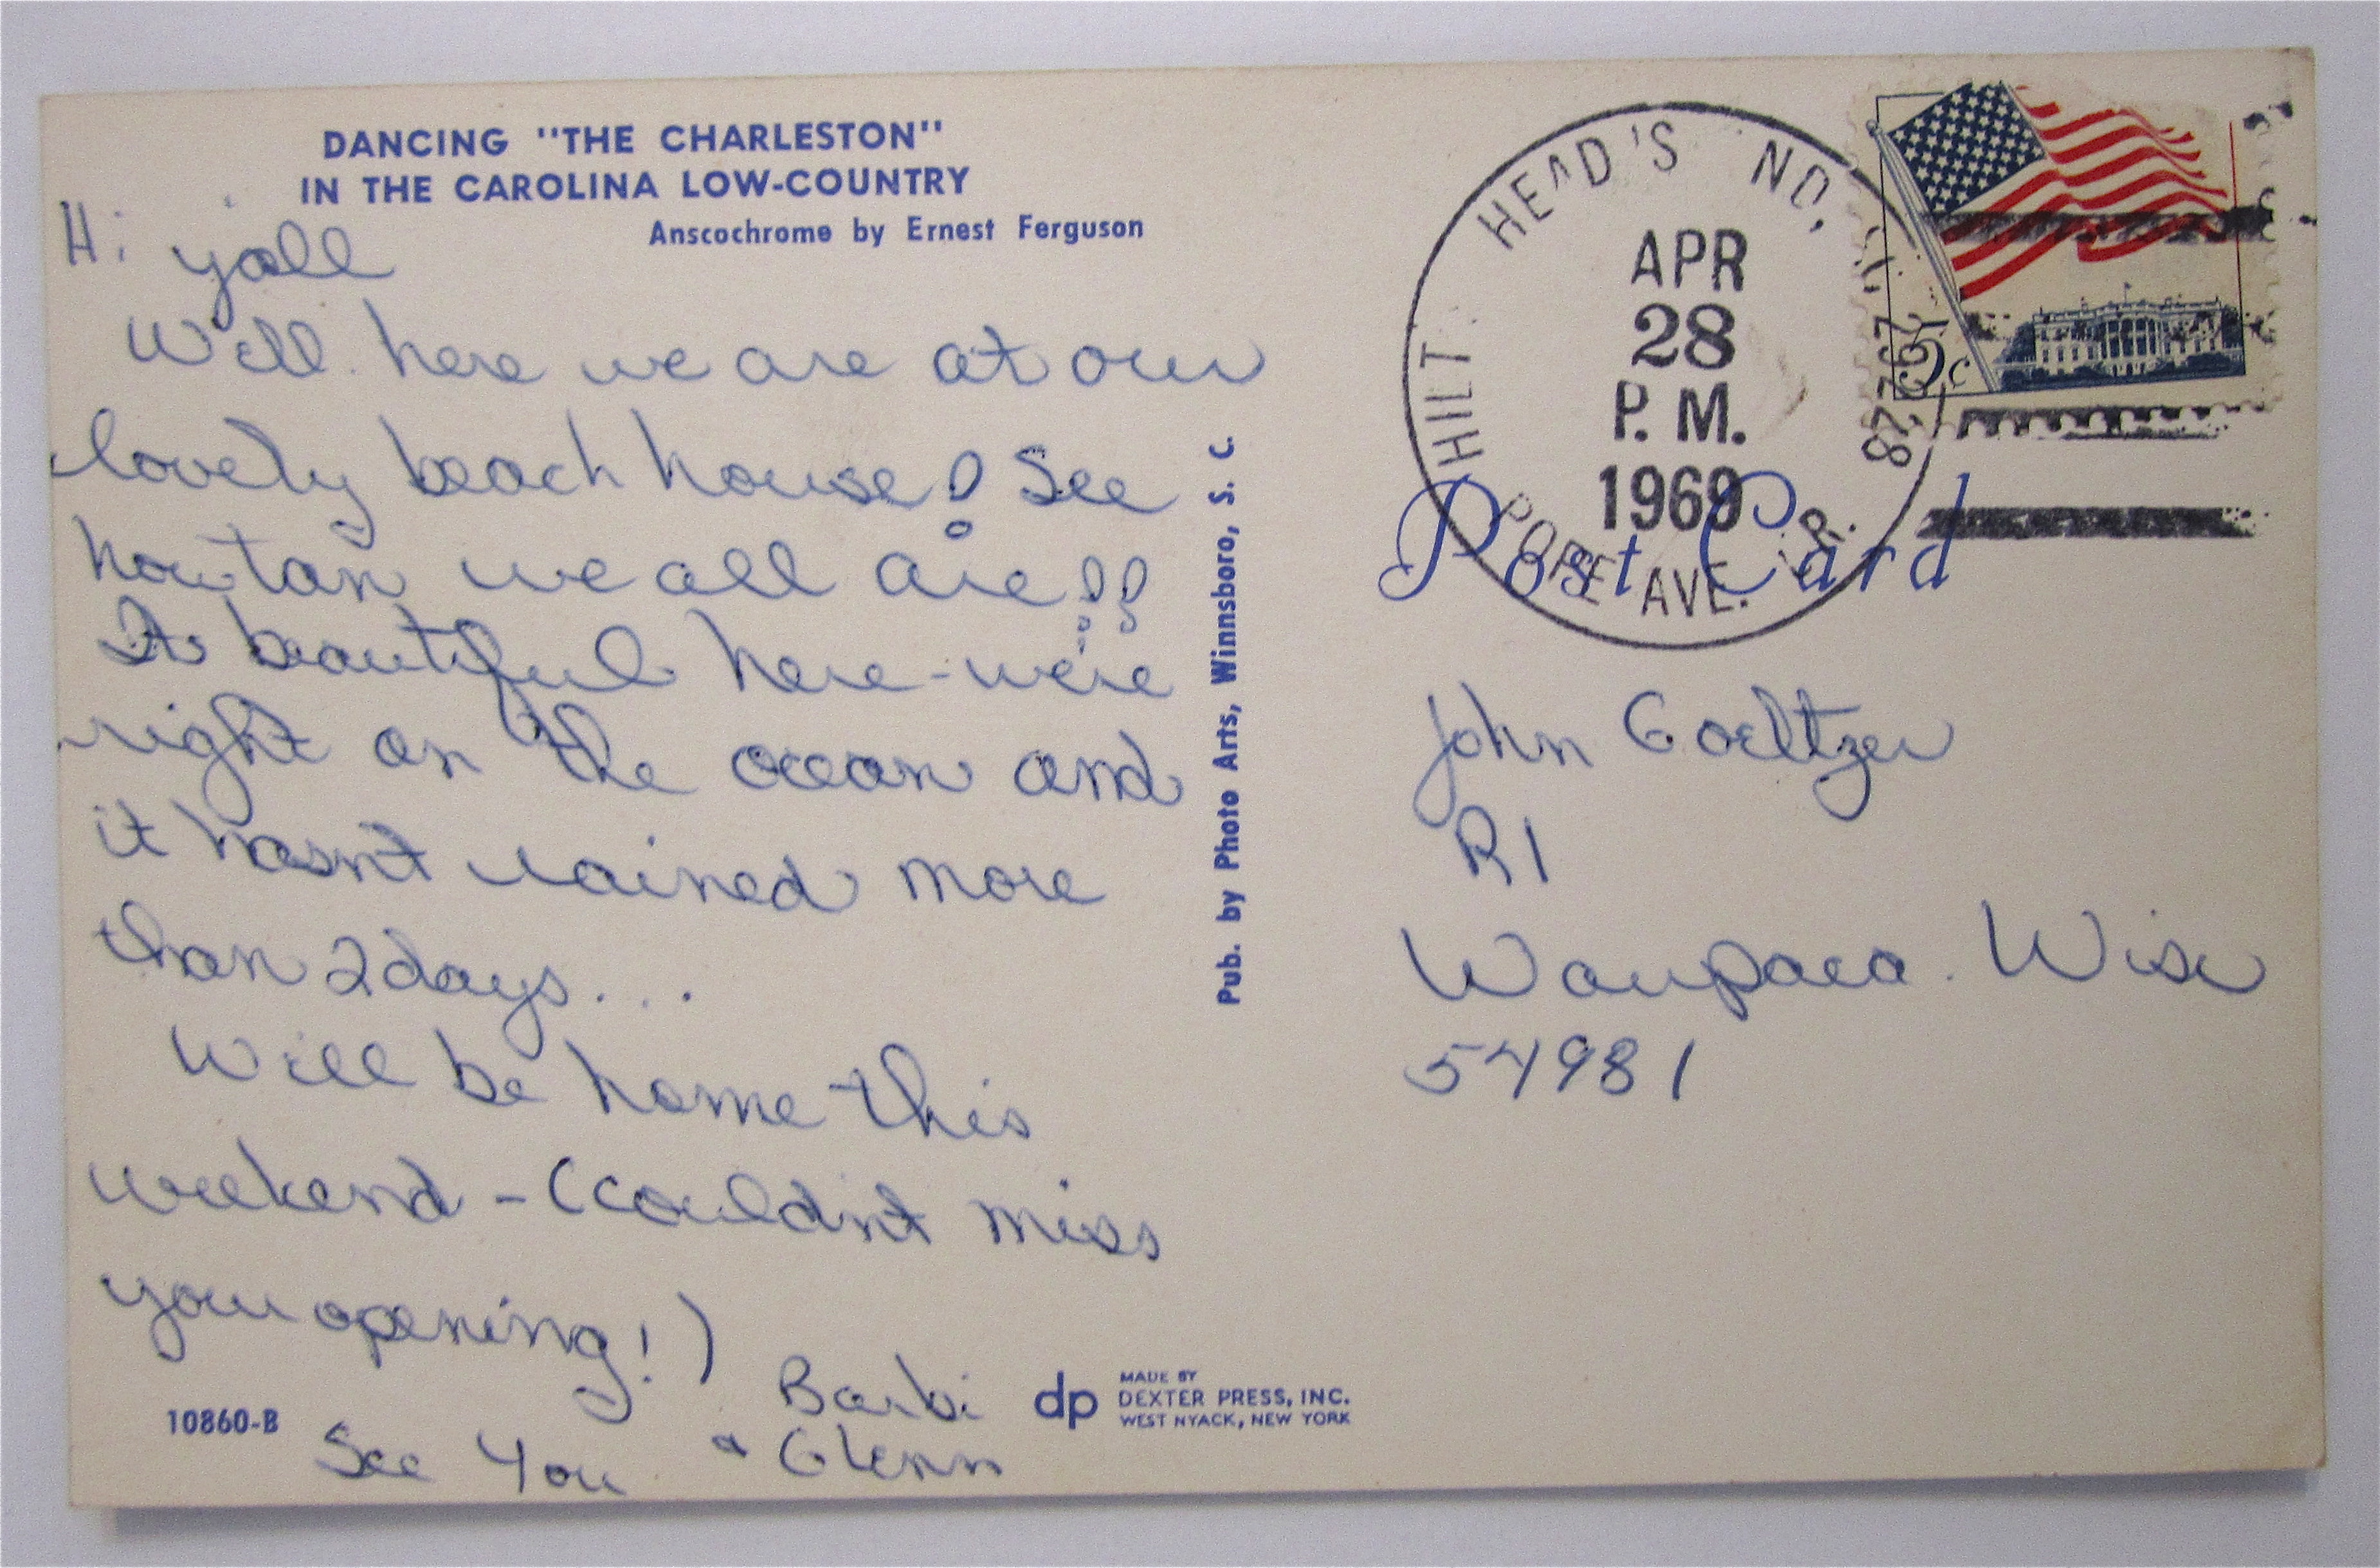 DANCING "THE CHARLESTON"
IN THE CAROLINA LOW-COUNTRY
Anscochrome by Ernest Ferguson
Hi yall
Well here we are at our
lovely beach house! See
how tan we all are!!
Its beautiful here - we're
right on the ocean and
it hasn't rained more
than 2 days...
Will be home this
weekend - (couldn't miss
your opening!)
Barbi
& Glenn
See You
10860-B
dp
MADE BY
DEXTER PRESS, INC.
WEST NYACK, NEW YORK
Pub. by Photo Arts, Winnsboro, S. C.
HILT HEAD'S ND, 29928
APR
28
P. M.
1969
POPE AVE. BR.
5c
Post Card
John Goeltzer
R1
Waupaca. Wisc
54981